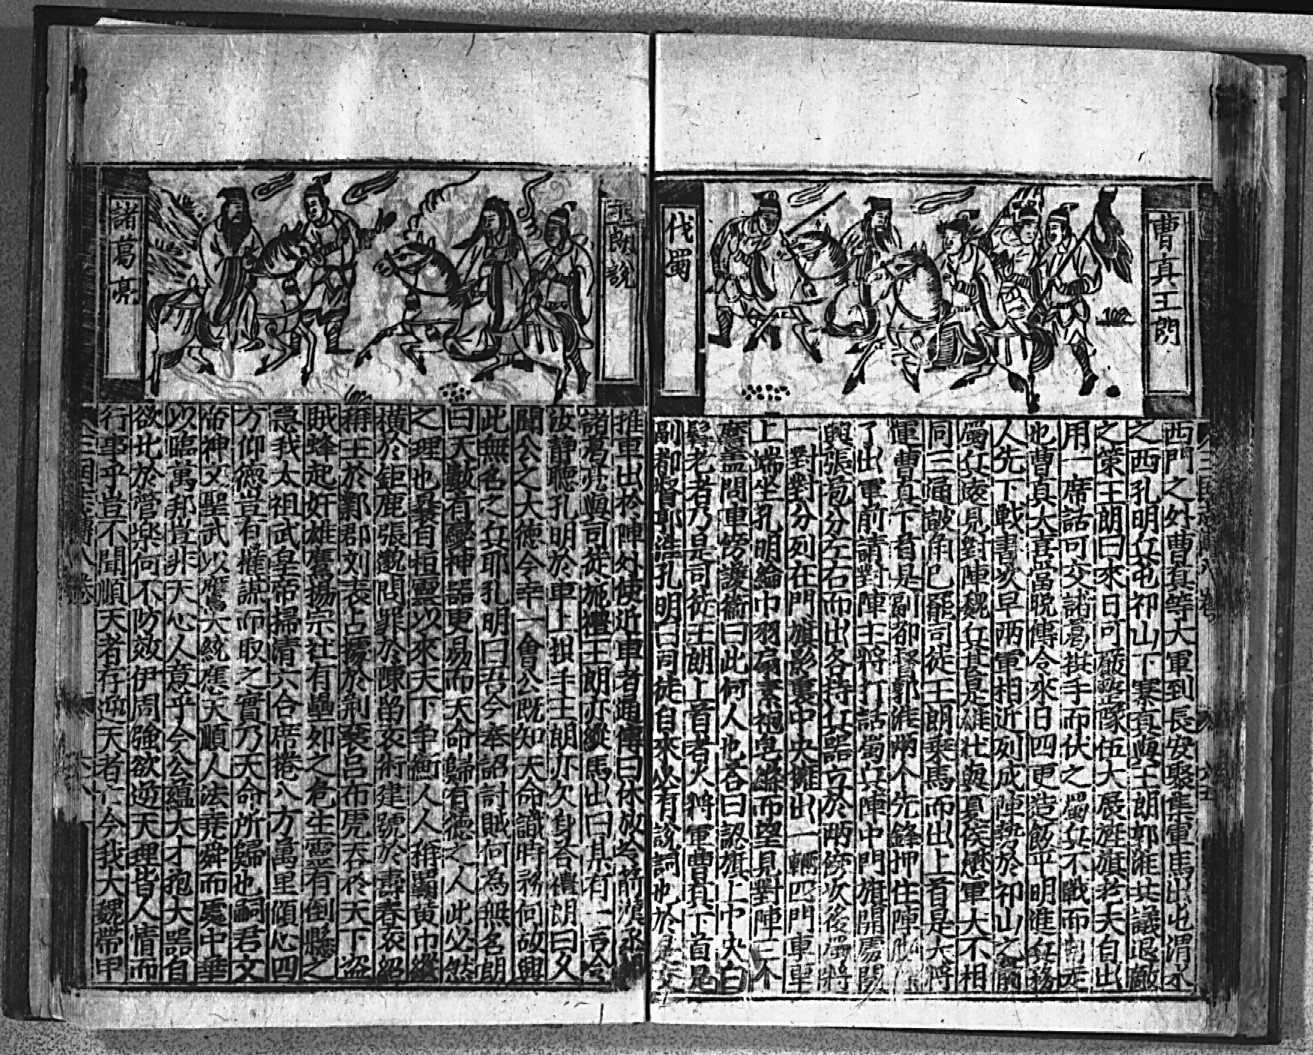 曹真王朗
伐蜀
西門之外曹真等大軍到長安聚集軍馬出屯渭水
之西孔明兵屯祁山下寨真與王朗郭淮共議退敵
之策王朗曰來日可嚴整隊伍大展旌旗老夫自出
用一席話可交諸葛拱手而伏之蜀兵不戰而自走
也曹真大喜當晚傳令來日四更造飯平明進兵務
人先下戰書次早兩軍相近列成陣勢於祁山之前
蜀兵陵見對陣魏兵甚是雄壯與夏侯楙軍大不相
同三通鼓角已罷司徒王朗乘馬而出上首是大將
軍曹真下首是副都督郭淮兩个先鋒押住陣
了出軍前請對陣主將打話蜀兵陣中門旗開處關
興張苞分左右而出各持兵器立於兩傍次後蜀將
一對對分列在門旗影裏中央擁出一輛四門車車
上端坐孔明綸巾羽扇素袍皂絛而望見對陣三个
麾蓋問車傍護衞曰此何人也答曰認旗上中央白
髯老者乃是司徒王朗上首者大將軍曹真下首是
副都督郭淮孔明曰司徒自來必有說詞也於是交
王朗說
諸葛亮
推車出於陣外使近車者通傳曰休放冷箭漢丞相
諸葛亮與司徒施禮王朗亦縱馬出曰某有一言令
汝靜聽孔明於車上拱手王朗亦欠身答禮朗曰久
聞公之大德今幸一會公既知天命識時務何故興
此無名之兵耶孔明曰吾今奉詔討賊何為無名朗
曰天數有變神器更易而天命歸有德之人此必然
之理也曩自桓靈以來天下爭衡人人稱霸黃巾縱
橫於鉅鹿張邈問罪於陳留袁術建號於壽春袁紹
稱王於鄴郡刘表占據於荆襄吕布虎吞於天下盜
賊蜂起奸雄鷹揚宗社有壘卵之危生靈有倒懸之
急我太祖武皇帝掃清六合席捲八方萬里傾心四
方仰德豈有權謀而取之實乃天命所歸也嗣君文
帝神文聖武以膺大統應天順人法堯舜而處中華
以臨萬邦豈非天心人意乎今公蘊大才抱大器自
欲比於管樂何不防效伊周強欲逆天理皆人情而
行事乎豈不聞順天者存逆天者亡今我大魏帶甲